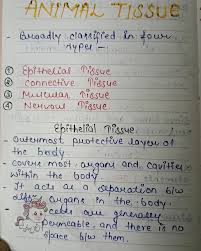 ANIMAL TISSUE
- Broadly classified in four
types -
① Epithelial Tissue
② Connective Tissue
③ Muscular Tissue
④ Nervous Tissue.
Epithelial Tissue
- Outermost protective layer of
the body
- Covers most organs and cavities
within the body
- It acts as a separation b/w
diff organs in the body.
- cells are generally
permeable, and there is no
space b/w them.